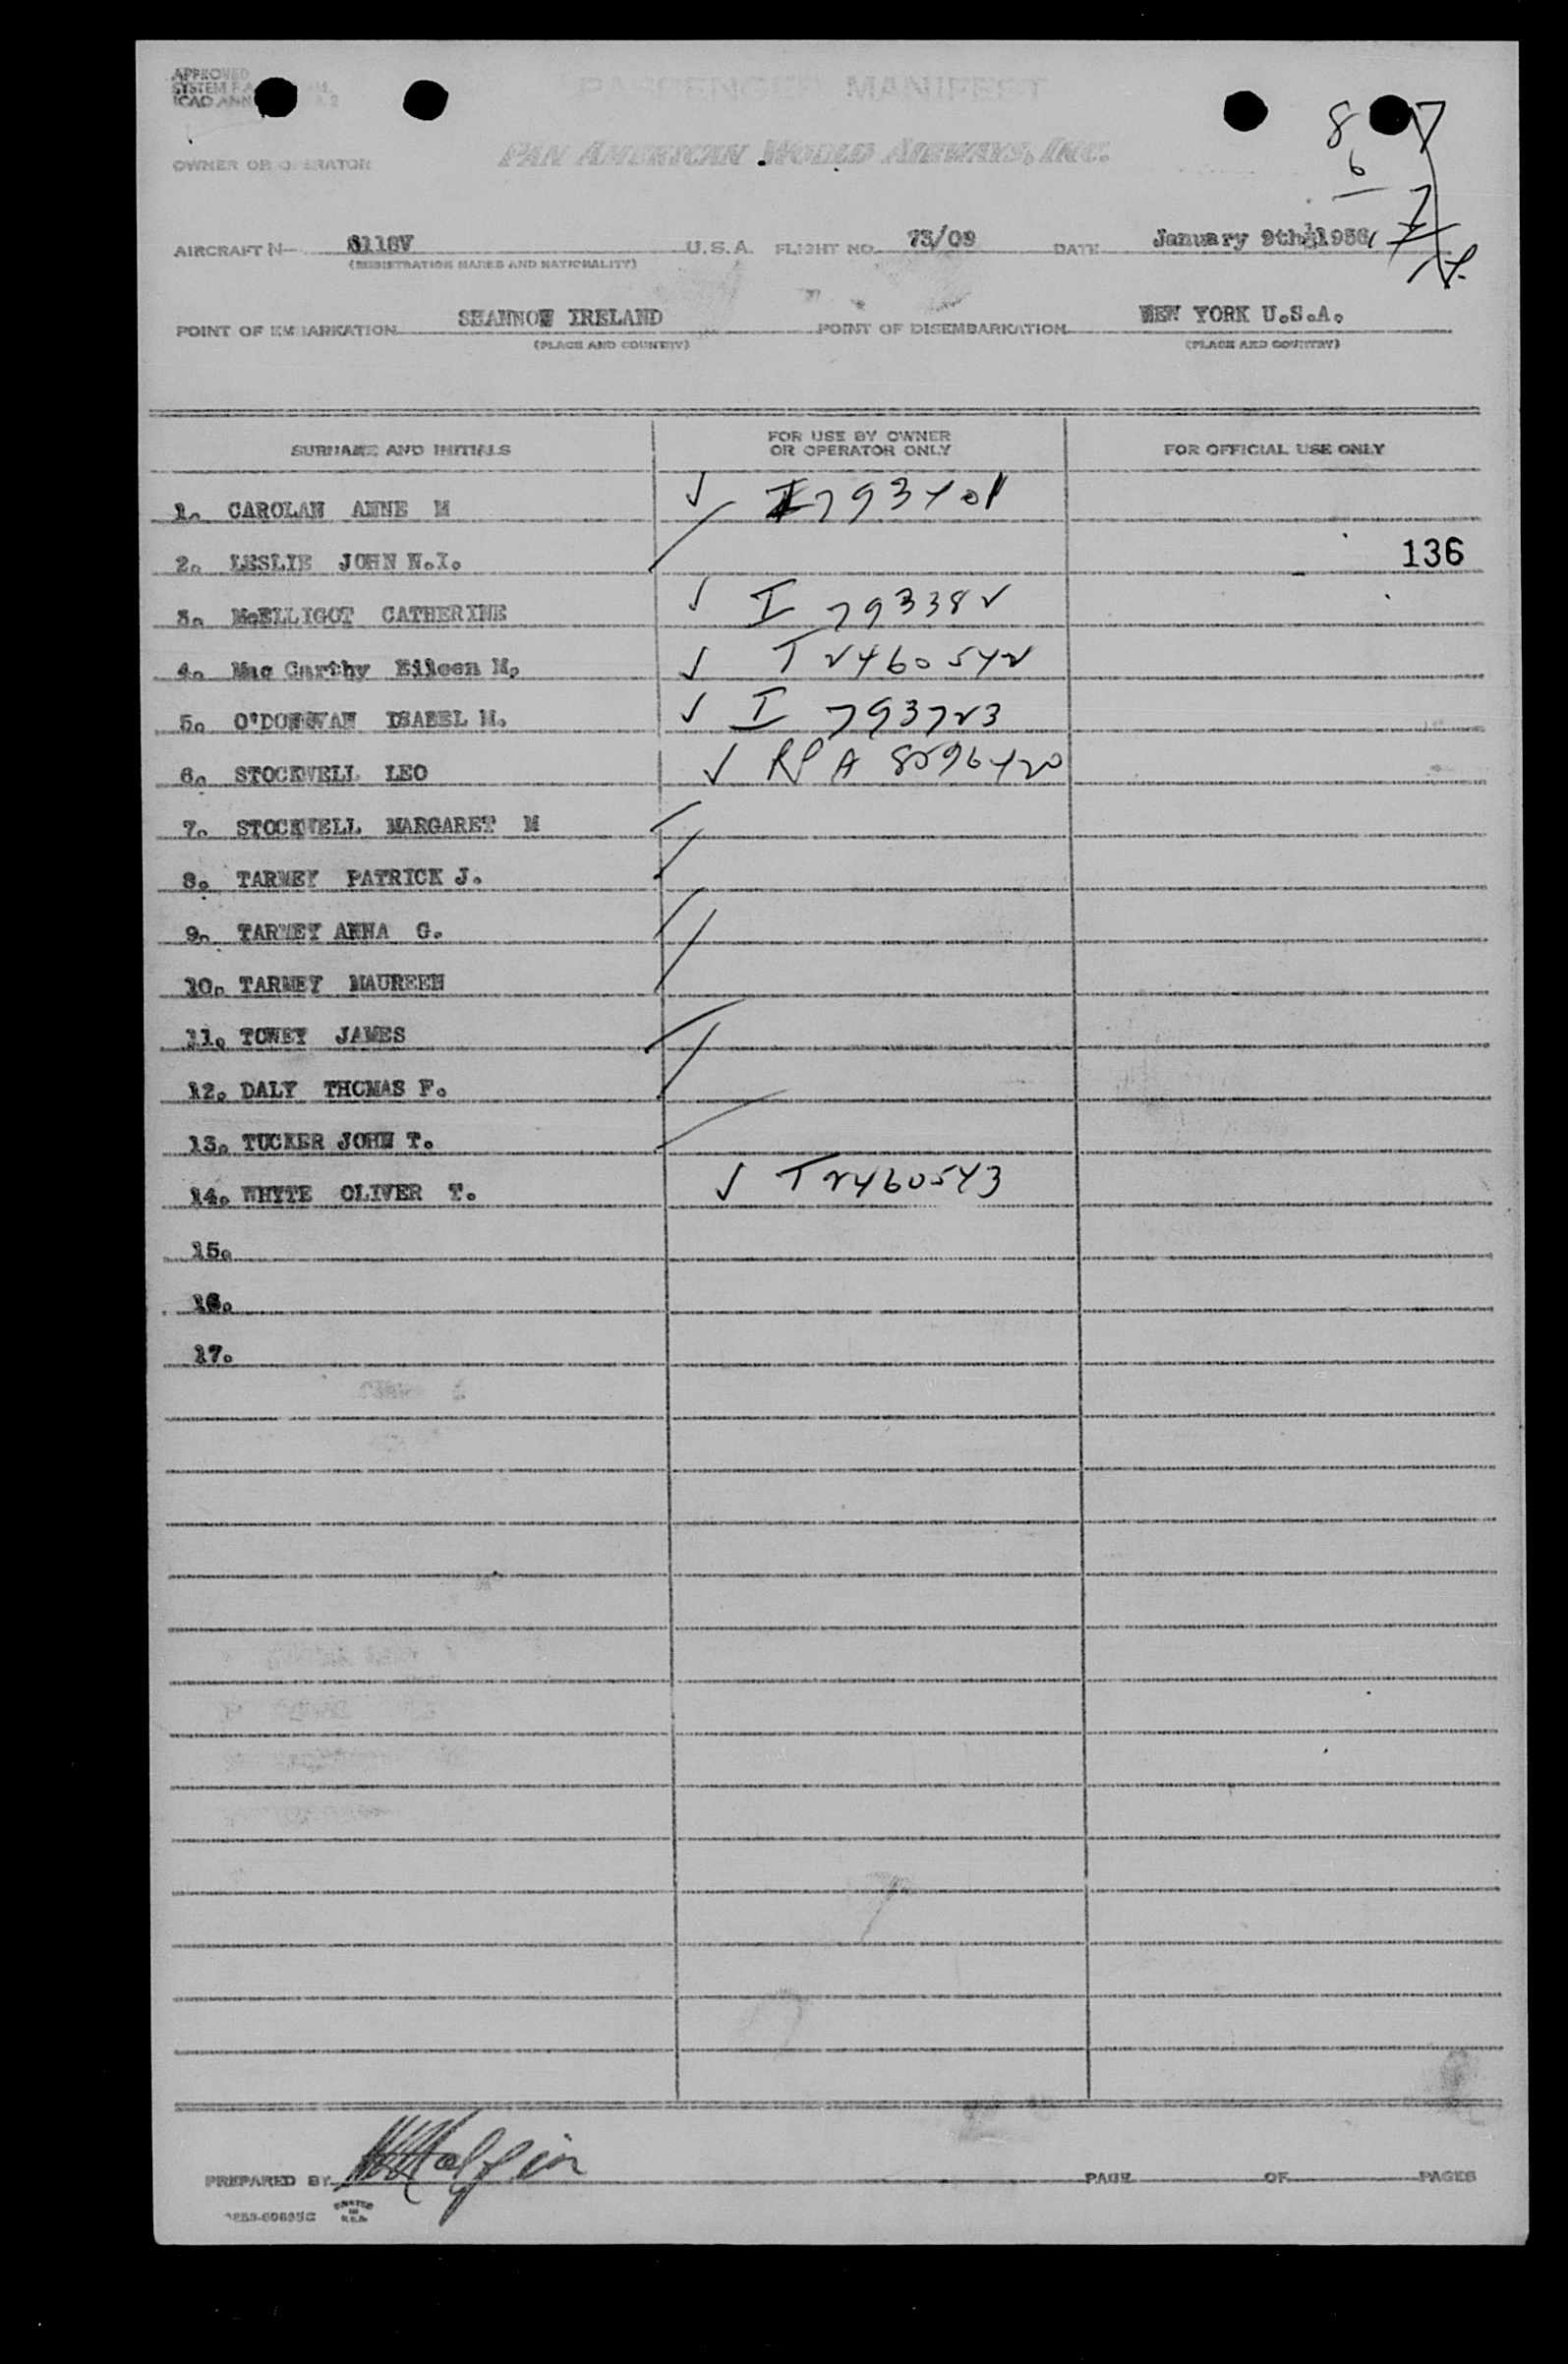 APPROVED
PASSENGER MANIFEST
8
6
OWNER OR OPERATOR
PAN AMERICAN WORLD AIRWAYS, INC.
AIRCRAFT N- U.S.A. FLIGHT NO. 73/09 DATE January 9th 1956
(REGISTRATION MARKS AND NATIONALITY)
POINT OF EMBARKATION SHANNON IRELAND POINT OF DISEMBARKATION NEW YORK U.S.A.
(PLACE AND COUNTRY) (PLACE AND COUNTRY)
SURNAME AND INITIALS FOR USE BY OWNER OR OPERATOR ONLY FOR OFFICIAL USE ONLY
1. CAROLAN ANNE M ✓ I 793401
2. LESLIE JOHN N.I. 136
3. McELLIGOT CATHERINE ✓ I 793382
4. Mac Carthy Eileen M. ✓ T 2460542
5. O'DONOVAN ISABEL M. ✓ I 793723
6. STOCKWELL LEO ✓ RP A
7. STOCKWELL MARGARET M
8. TARMEY PATRICK J.
9. TARMEY ANNA G.
10. TARMEY MAUREEN
11. TOWEY JAMES
12. DALY THOMAS F.
13. TUCKER JOHN T.
14. WHYTE OLIVER T. ✓ T 2460543
15.
16.
17.
PREPARED BY PAGE OF PAGES
PRINTED IN U.S.A.